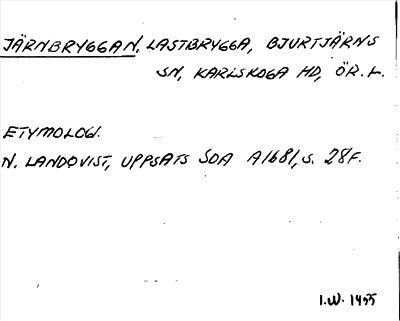 JÄRNBRYGGAN, LASTBRYGGA, BJURTJÄRNS
SN, KARLSKOGA HD, ÖR. L.
ETYMOLOGI.
N. LANDQVIST, UPPSATS SOA A1681, S. 28F.
I.W. 1955